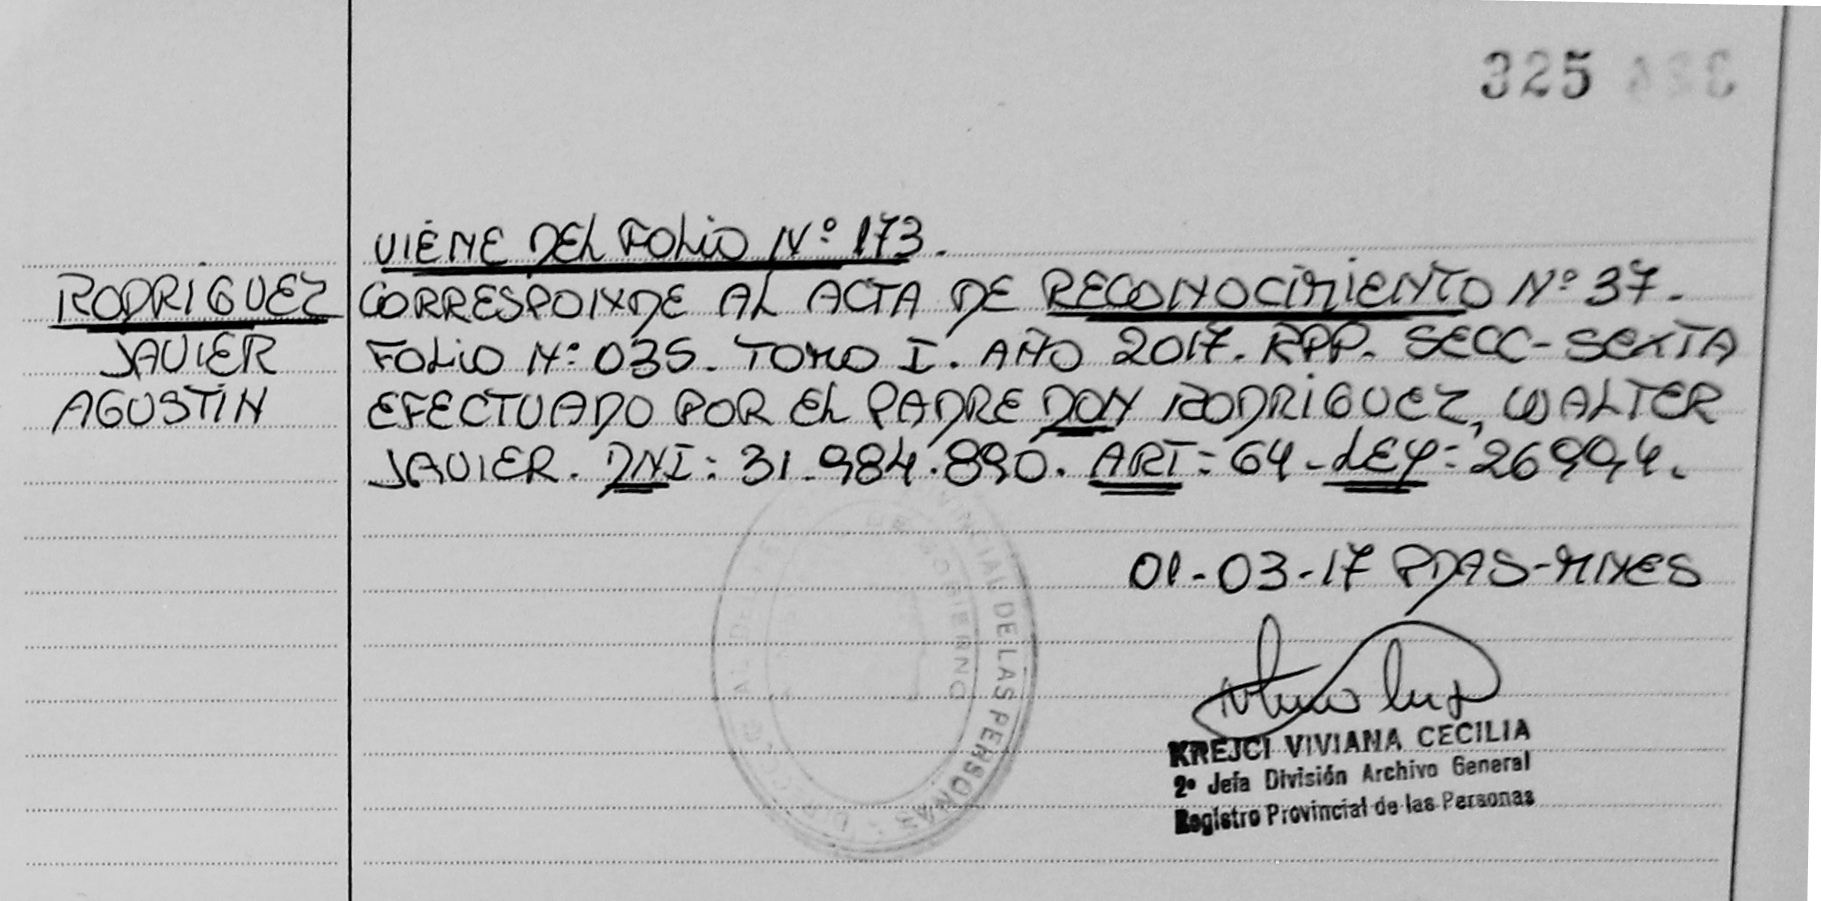 325
VIENE DEL FOLIO Nº 173.
RODRIGUEZ CORRESPONDE AL ACTA DE RECONOCIMIENTO Nº 37.
JAVIER FOLIO Nº 035. TOMO I. AÑO 2017. RPP. SECC-SEXTA
AGUSTIN EFECTUADO POR EL PADRE DON RODRIGUEZ, WALTER
JAVIER. DNI: 31.984.890. ART: 64-LEY: 26994.
01-03-17 PDAS-MNES
KREJCI VIVIANA CECILIA
2º Jefa División Archivo General
Registro Provincial de las Personas
DE LAS PERSONAS
GOBIERNO